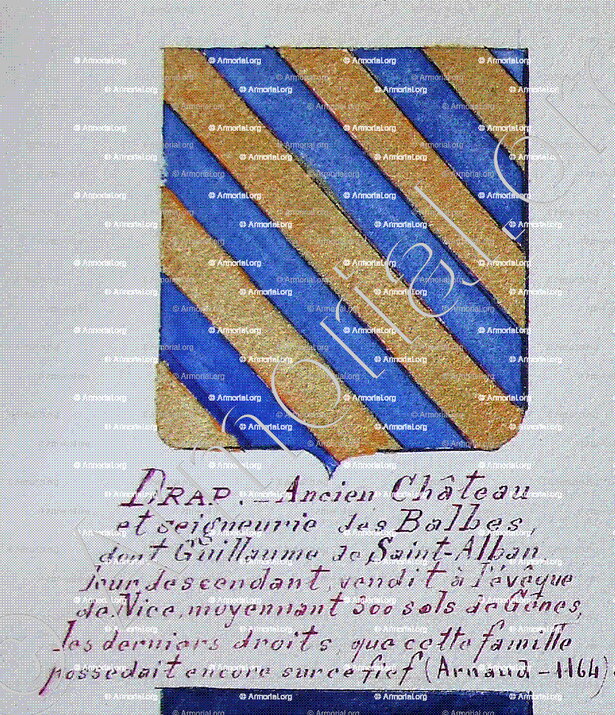 DRAP. - Ancien Château
et seigneurie des Balbes,
dont Guillaume de Saint-Alban
leur descendant, vendit à l'évêque
de Nice, moyennant 500 sols de Gênes,
les derniers droits, que cette famille
possédait encore sur ce fief (Arnaud - 1164).
Armorial.org
© Armorial.org